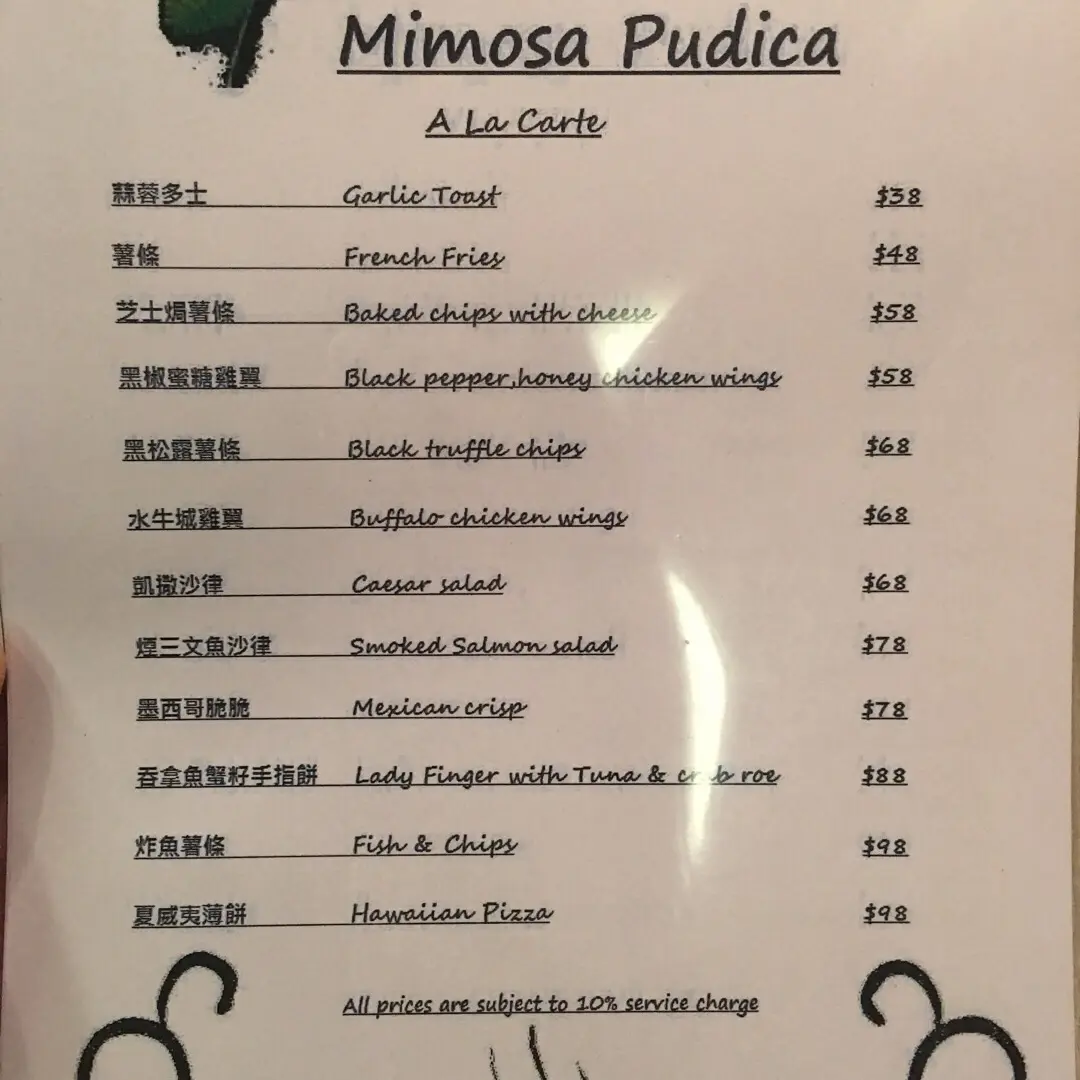 Mimosa Pudica
A La Carte
蒜蓉多士 Garlic Toast $38
薯條 French Fries $48
芝士焗薯條 Baked chips with cheese $58
黑椒蜜糖雞翼 Black pepper,honey chicken wings $58
黑松露薯條 Black truffle chips $68
水牛城雞翼 Buffalo chicken wings $68
凱撒沙律 Caesar salad $68
煙三文魚沙律 Smoked Salmon salad $78
墨西哥脆脆 Mexican crisp $78
吞拿魚蟹籽手指餅 Lady Finger with Tuna & crab roe $88
炸魚薯條 Fish & Chips $98
夏威夷薄餅 Hawaiian Pizza $98
All prices are subject to 10% service charge